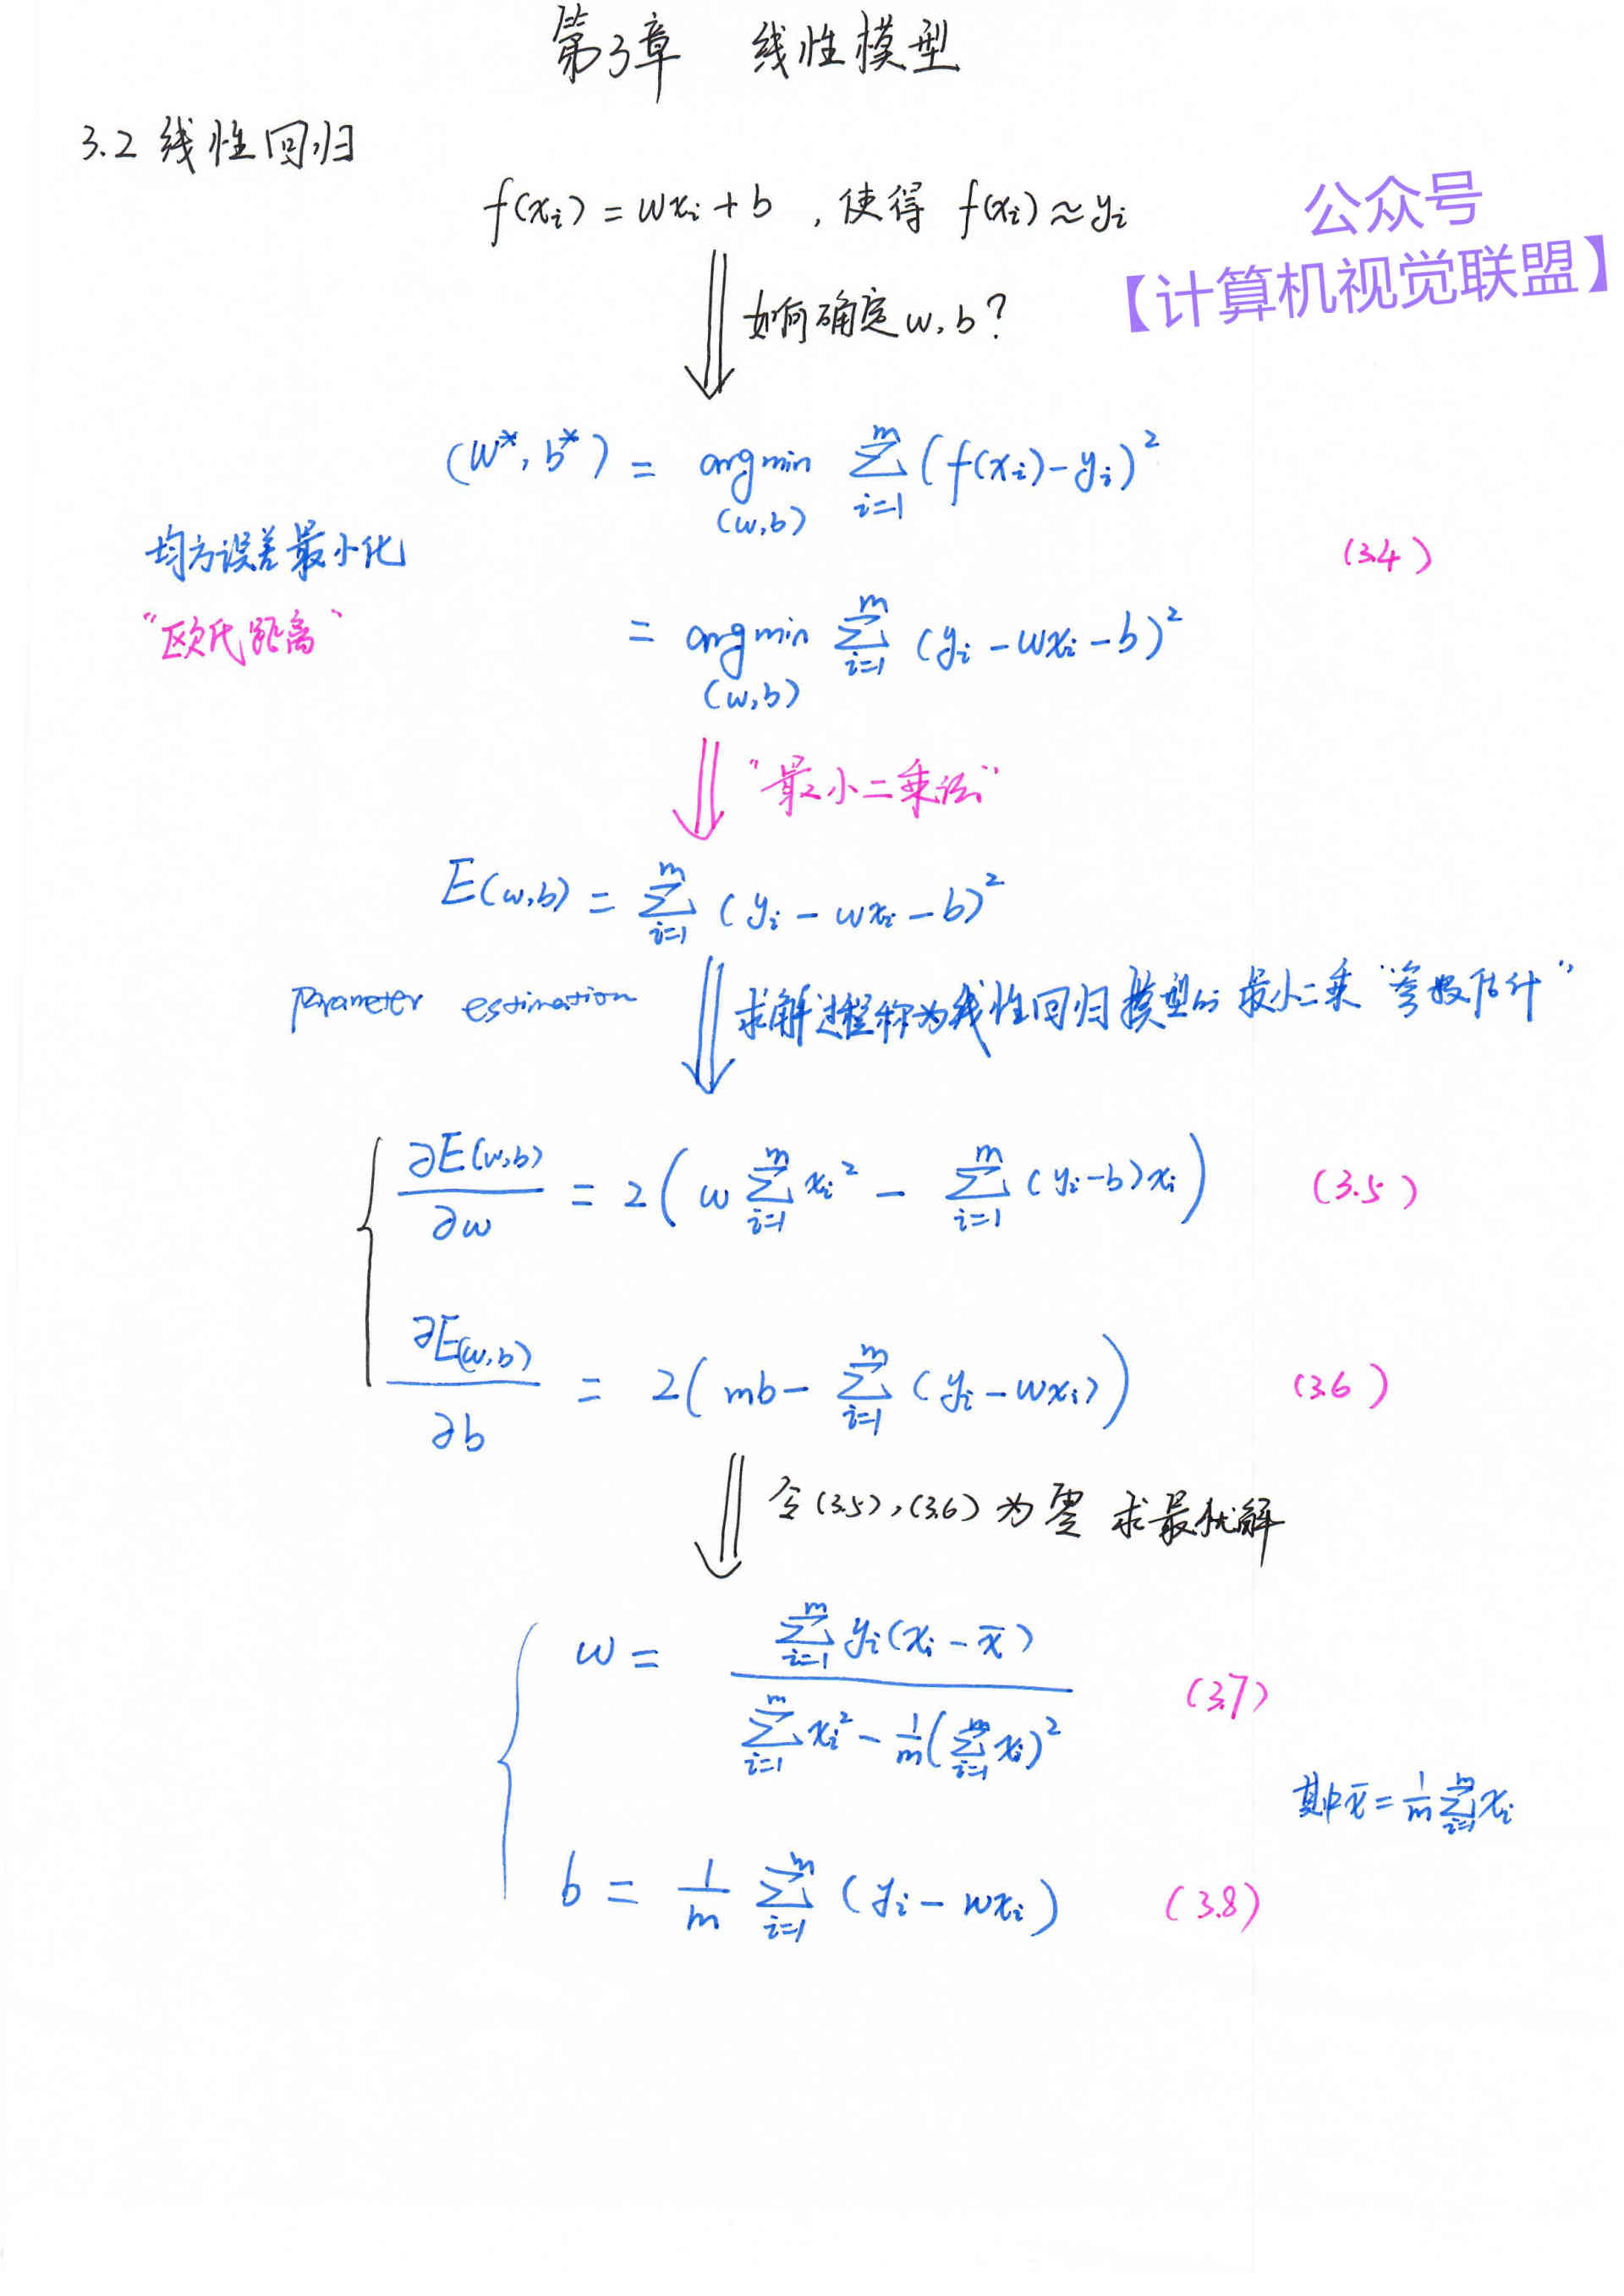 第3章 线性模型
3.2 线性回归
f(xᵢ) = wxᵢ + b , 使得 f(xᵢ) ≈ yᵢ
公众号
【计算机视觉联盟】
如何确定 w, b?
(w*, b*) = arg min_(w,b) ∑_{i=1}^{m} (f(xᵢ) - yᵢ)²
均方误差最小化
(3.4)
"欧氏距离"
= arg min_(w,b) ∑_{i=1}^{m} (yᵢ - wxᵢ - b)²
"最小二乘法"
E(w,b) = ∑_{i=1}^{m} (yᵢ - wxᵢ - b)²
Parameter estimation 求解过程称为线性回归模型的最小二乘"参数估计"
∂E(w,b)/∂w = 2( w ∑_{i=1}^{m} xᵢ² - ∑_{i=1}^{m} (yᵢ - b)xᵢ ) (3.5)
∂E(w,b)/∂b = 2( mb - ∑_{i=1}^{m} (yᵢ - wxᵢ) ) (3.6)
令(3.5),(3.6)为零 求最优解
w = ∑_{i=1}^{m} yᵢ(xᵢ - x̄) / ( ∑_{i=1}^{m} xᵢ² - 1/m (∑_{i=1}^{m} xᵢ)² ) (3.7)
其中 x̄ = 1/m ∑_{i=1}^{m} xᵢ
b = 1/m ∑_{i=1}^{m} (yᵢ - wxᵢ) (3.8)